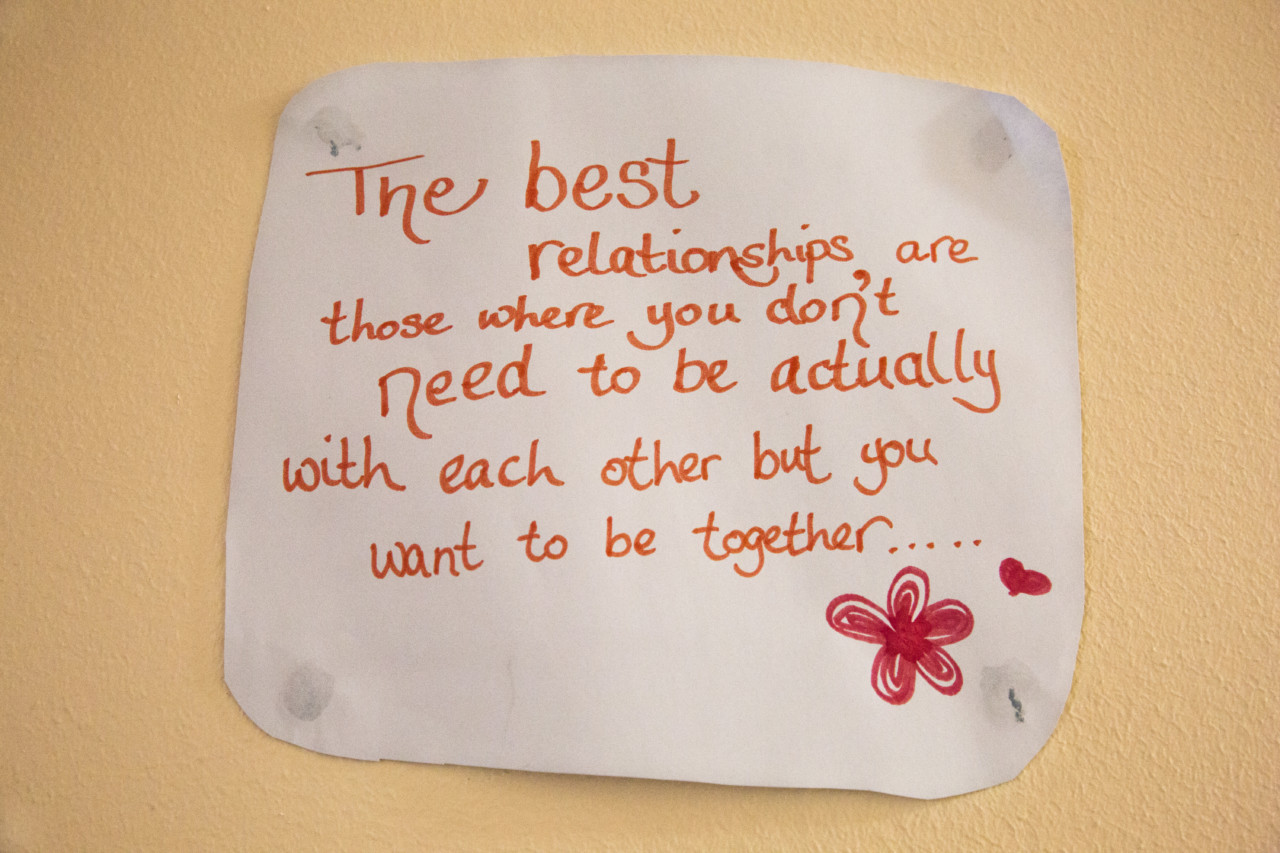 The best
relationships are
those where you don't
need to be actually
with each other but you
want to be together.....